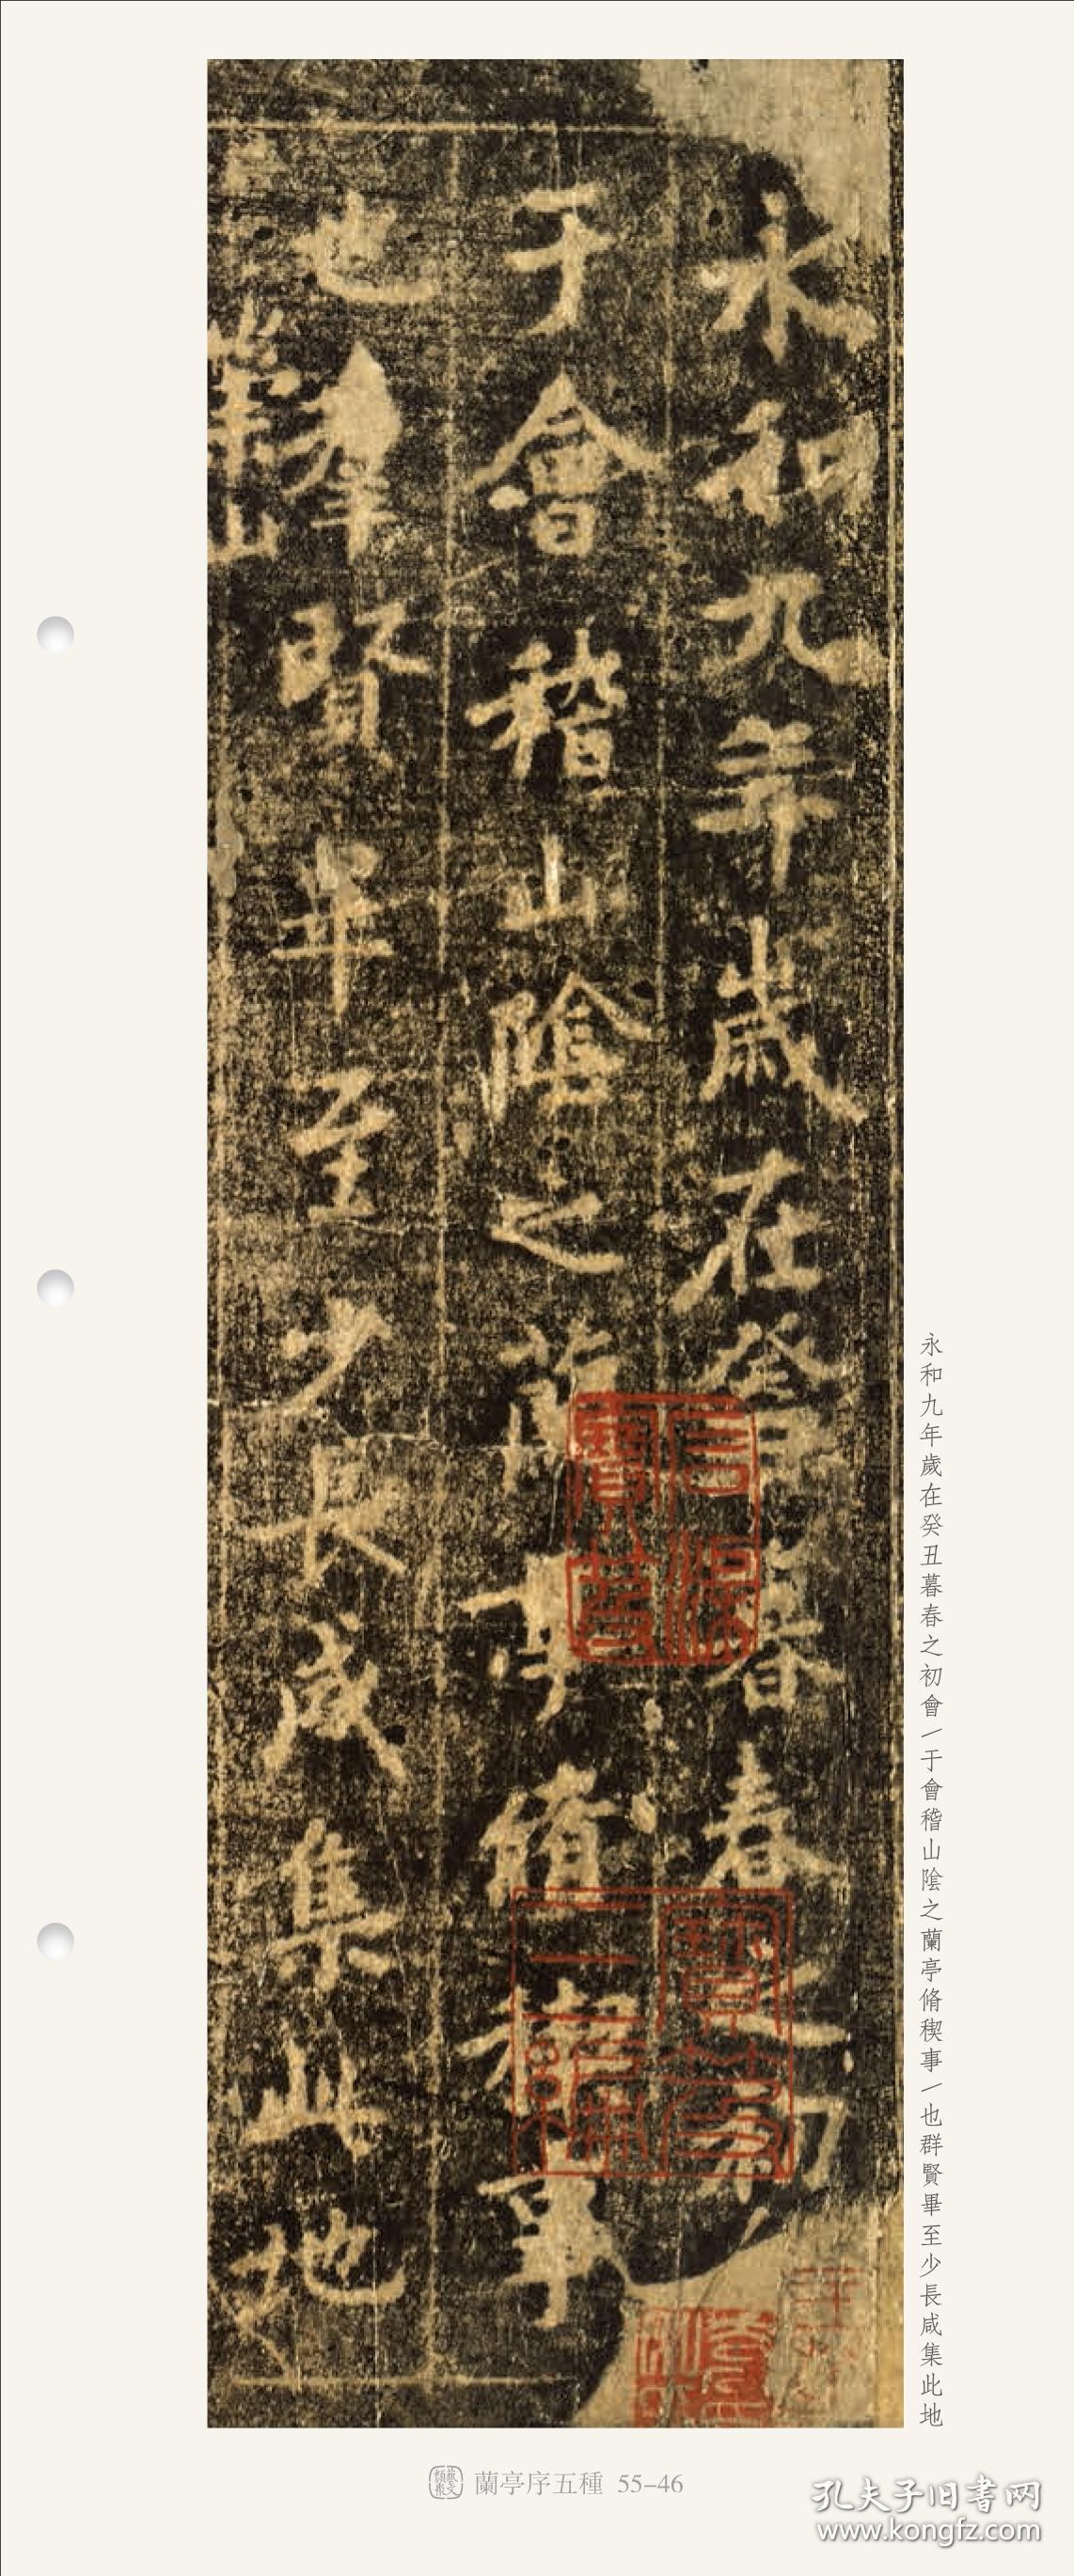 永和九年歲在癸丑暮春之初
于會稽山陰之蘭亭脩稧事
也羣賢畢至少長咸集此地
崇山
永和九年歲在癸丑暮春之初會/于會稽山陰之蘭亭脩稧事/也群賢畢至少長咸集此地
蘭亭序五種 55-46
孔夫子旧書网
www.kongfz.com